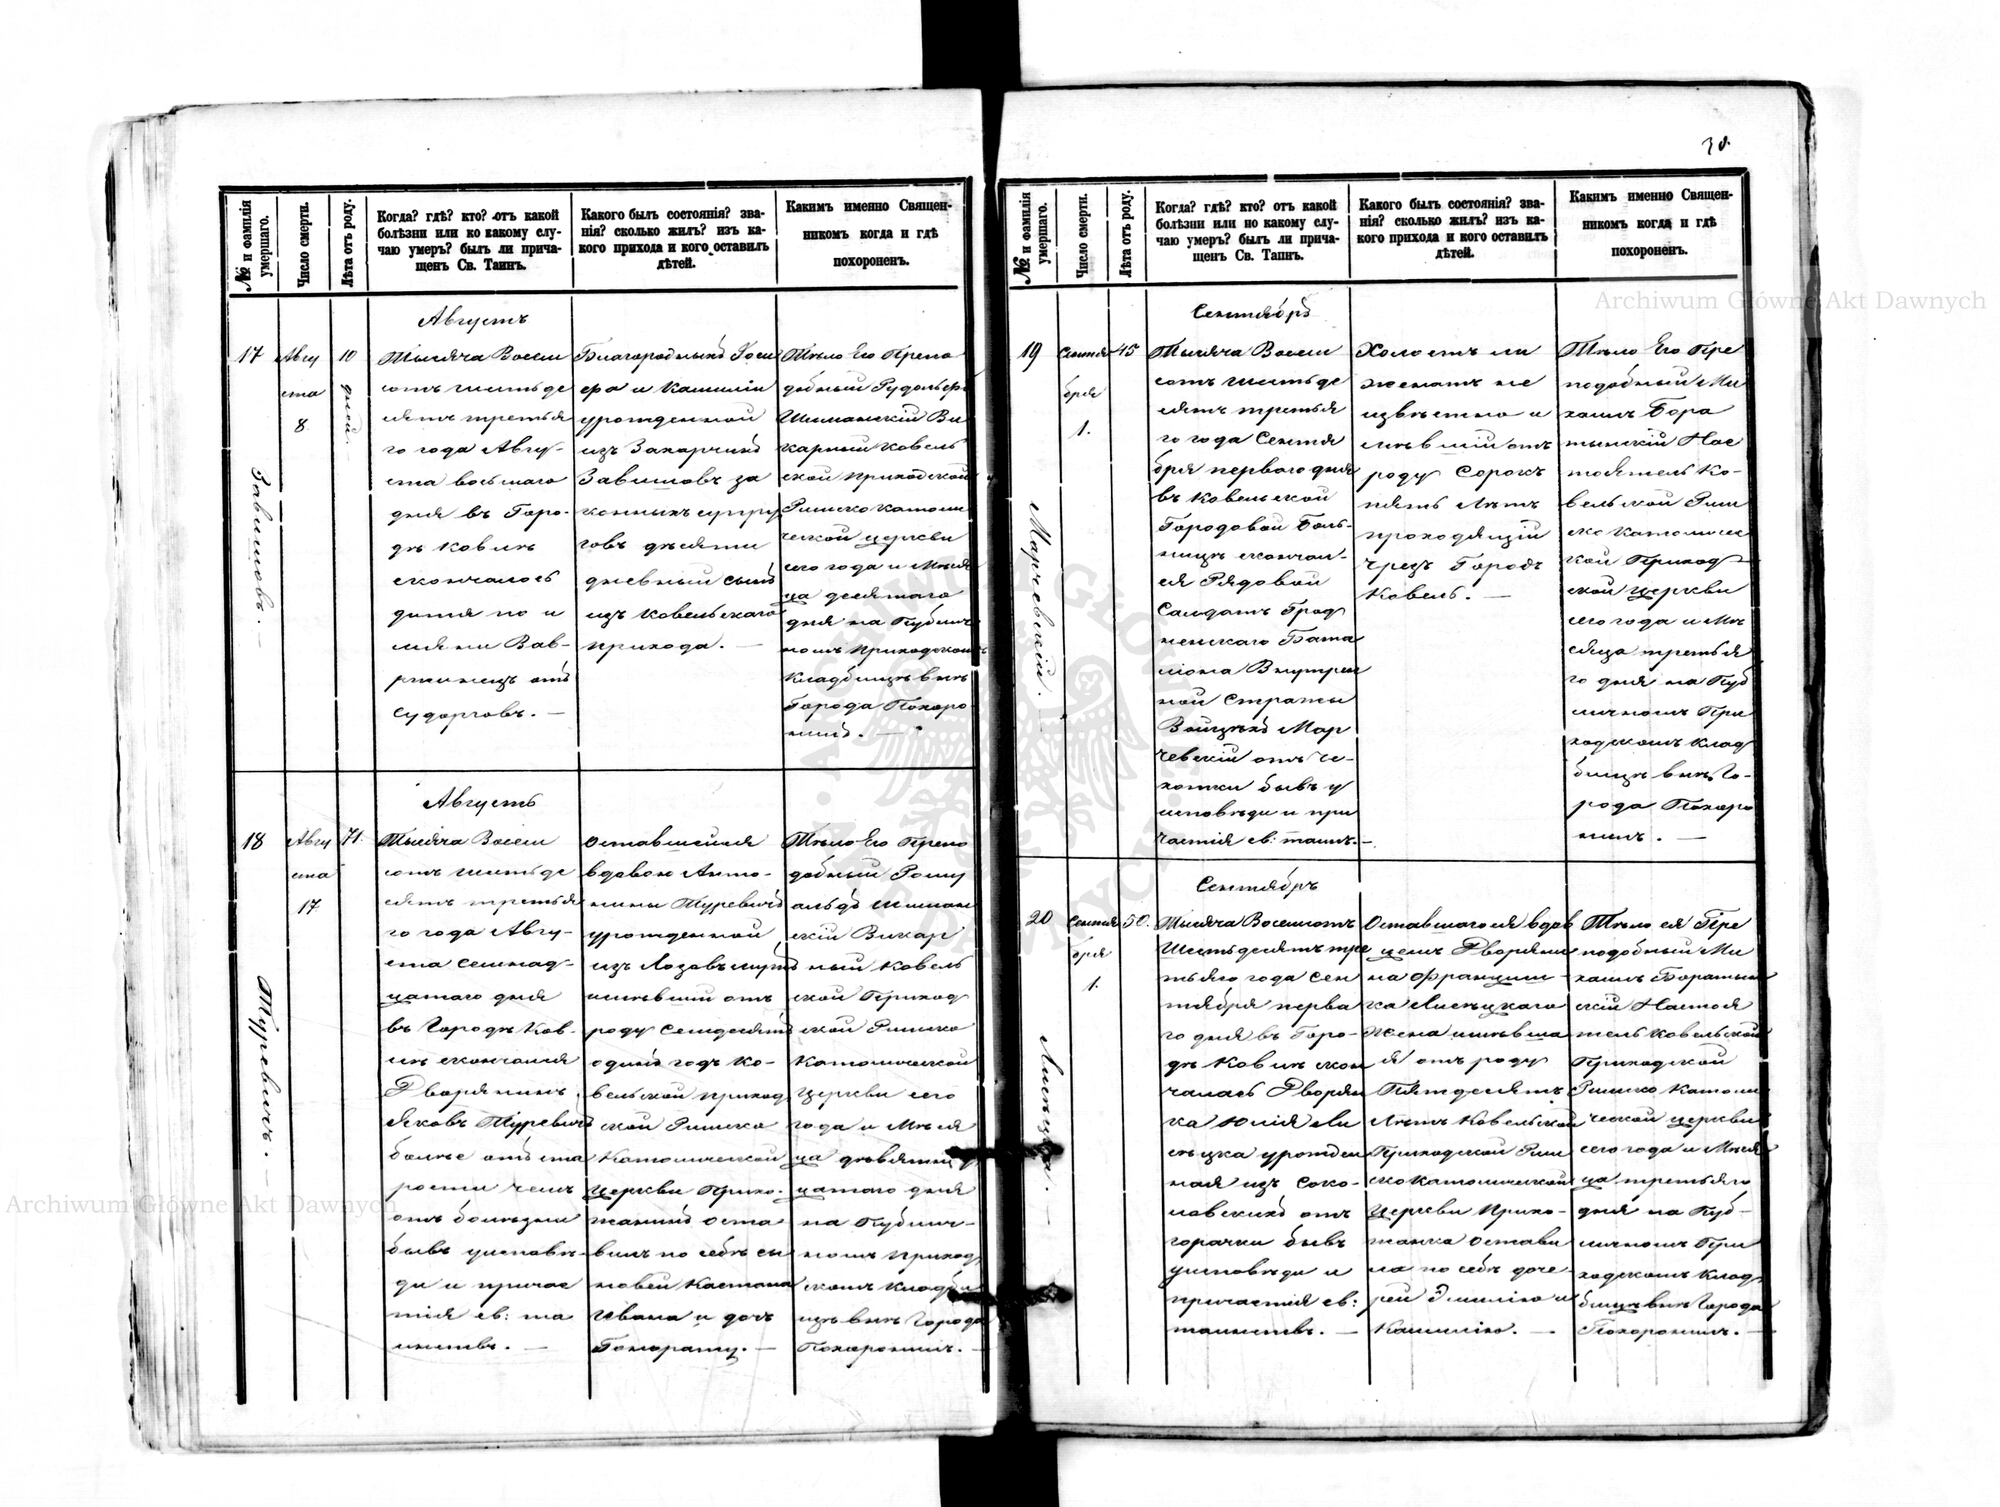 38.
№ и фамилія умершаго.
Число смерти.
Лѣта отъ роду.
Когда? гдѣ? кто? отъ какой
болѣзни или ко какому слу-
чаю умеръ? былъ ли прича-
щенъ Св. Таинъ.
Какого былъ состоянія? зва-
нія? сколько жилъ? изъ ка-
кого прихода и кого оставилъ
дѣтей.
Какимъ именно Священ-
никомъ когда и гдѣ
похороненъ.
17
Завишовъ. —
Авгу
ста
8
10
дней.
Августъ
Тысяча Восем
сотъ шестьде
сятъ третья
го года Авгу-
ста восьмаго
дня въ Горо-
дѣ Ковлѣ
скончалось
дитя по и
мяни Вав-
ржинецъ отъ
судорговъ. —
Благородныхъ Iози
фа и Камиліи
урожденной
изъ Захарчикъ
Завишовъ за
конныхъ супру
говъ дѣсяти
дневный сынъ
изъ Ковельскаго
прихода. —
Тѣло Его Препо
добный Рудольфъ
Шиманскій Ви
карный Ковель
ской приходской
Римско католи
ческой церкви
сего года и Мѣся
ца десятаго
дня на Публич
номъ приходскомъ
Кладбищѣ внѣ
Города Похоро
нилъ. —
18
Туревичъ. —
Авгу
ста
17
71.
Августъ
Тысяча Восем
сотъ шестьде
сятъ третья
го года Авгу-
ста семнад-
цатаго дня
въ Городѣ Ков-
лѣ скончался
Дворянинъ
Яковъ Туревичъ
болѣе отъ ста
рости чем
отъ болѣзни
бывъ уисповѣ-
ди и причас
тія св: та
инствъ. —
Оставшейся
вдовою Анто-
нины Туревичъ
урожденной
изъ Лозовъ мужъ
имѣвшій отъ
роду семдесятъ
одинъ годъ Ко-
вельской приход
ской Римско
Католической
церкви Прихо-
жанинъ оста
вилъ по себѣ сы
новей Каетана
Ивана и дочь
Гонорату. —
Тѣло Его Препо
добный Рому
альдъ Шиман
скій Викар
ный Ковель
ской Приход
ской Римско
Католической
Церкви сего
года и Мѣся
ца дѣвятнад
цатаго дня
на Публич-
номъ приход
скомъ кладби
щѣ внѣ Города
Похоронилъ. —
№ и фамилія умершаго.
Число смерти.
Лѣта отъ роду.
Когда? гдѣ? кто? отъ какой
болѣзни или но какому слу-
чаю умеръ? былъ ли прича-
щенъ Св. Таинъ.
Какого былъ состоянія? зва-
нія? сколько жилъ? изъ ка-
кого прихода и кого оставилъ
дѣтей.
Какимъ именно Священ-
никомъ когда и гдѣ
похороненъ.
19
Марчевскій. —
Сентя
бря
1.
45
Сентябрь
Тысяча Восем
сотъ шестьде
сятъ третья
го года Сентя
бря перваго дня
въ Ковельской
Городовой Боль-
ницѣ скончал-
ся Рядовой
Салдатъ Грод
ненскаго Бата
ліона Внутрен
ной Стражи
Войцѣхъ Мар
чевскій отъ че-
хотки бывъ у
исповѣди и при
частія св: таинъ. —
Холостъ ли
женатъ не
извѣстно и
мѣвшій отъ
роду сорокъ
пять лѣтъ
проходящій
чрезъ Городъ
Ковель. —
Тѣло Его Пре
подобный Ми
хаилъ Бора
тынскій Нас
тоятель Ко-
вельской Рим
ско Католичес
кой Приход-
ской Церкви
сего года и Мѣ
сяца третья
го дня на Пуб
личномъ При
ходскомъ клад
бищѣ внѣ Го-
рода Похоро
нилъ. —
20
Лисецка. —
Сентя
бря
1.
50.
Сентябрь
Тысяча Восемсотъ
Шестьдесятъ тре
тьяго года Сен
тября перва
го дня въ Горо-
дѣ Ковлѣ скон
чалась Дворян
ка Юлія Ли
сѣцка урожден
ная изъ Соко-
ловскихъ отъ
горачки бывъ
уисповѣди и
причастія св:
таинствъ. —
Оставшагося вдов
цемъ Дворяни
на Францишка
Лисѣцкаго
Жена имѣвша
я отъ роду
Пятдесятъ
Лѣтъ Ковельской
Приходской Рим
ско католической
Церкви Прихо-
жанка остави
ла по себѣ доче-
рей Эмилію и
Камилію. —
Тѣло ея Пре
подобный Ми
хаилъ Боратын
скій Настоя
тель Ковельской
Приходской
Римско Католи
ческой церкви
сего года и Мѣся
ца третьяго
дня на Пуб-
личномъ При
ходскомъ клад
бищѣ внѣ Города
Похоронилъ. —
Archiwum Główne Akt Dawnych
Archiwum Główne Akt Dawnych